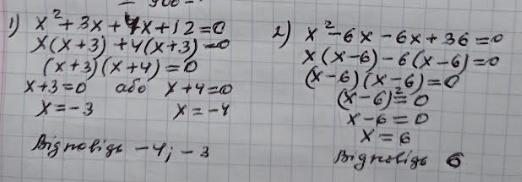 1) x²+3x+4x+12=0
x(x+3)+4(x+3)=0
(x+3)(x+4)=0
x+3=0 або x+4=0
x=-3 x=-4
Відповідь -4; -3
2) x²-6x-6x+36=0
x(x-6)-6(x-6)=0
(x-6)(x-6)=0
(x-6)²=0
x-6=0
x=6
Відповідь 6